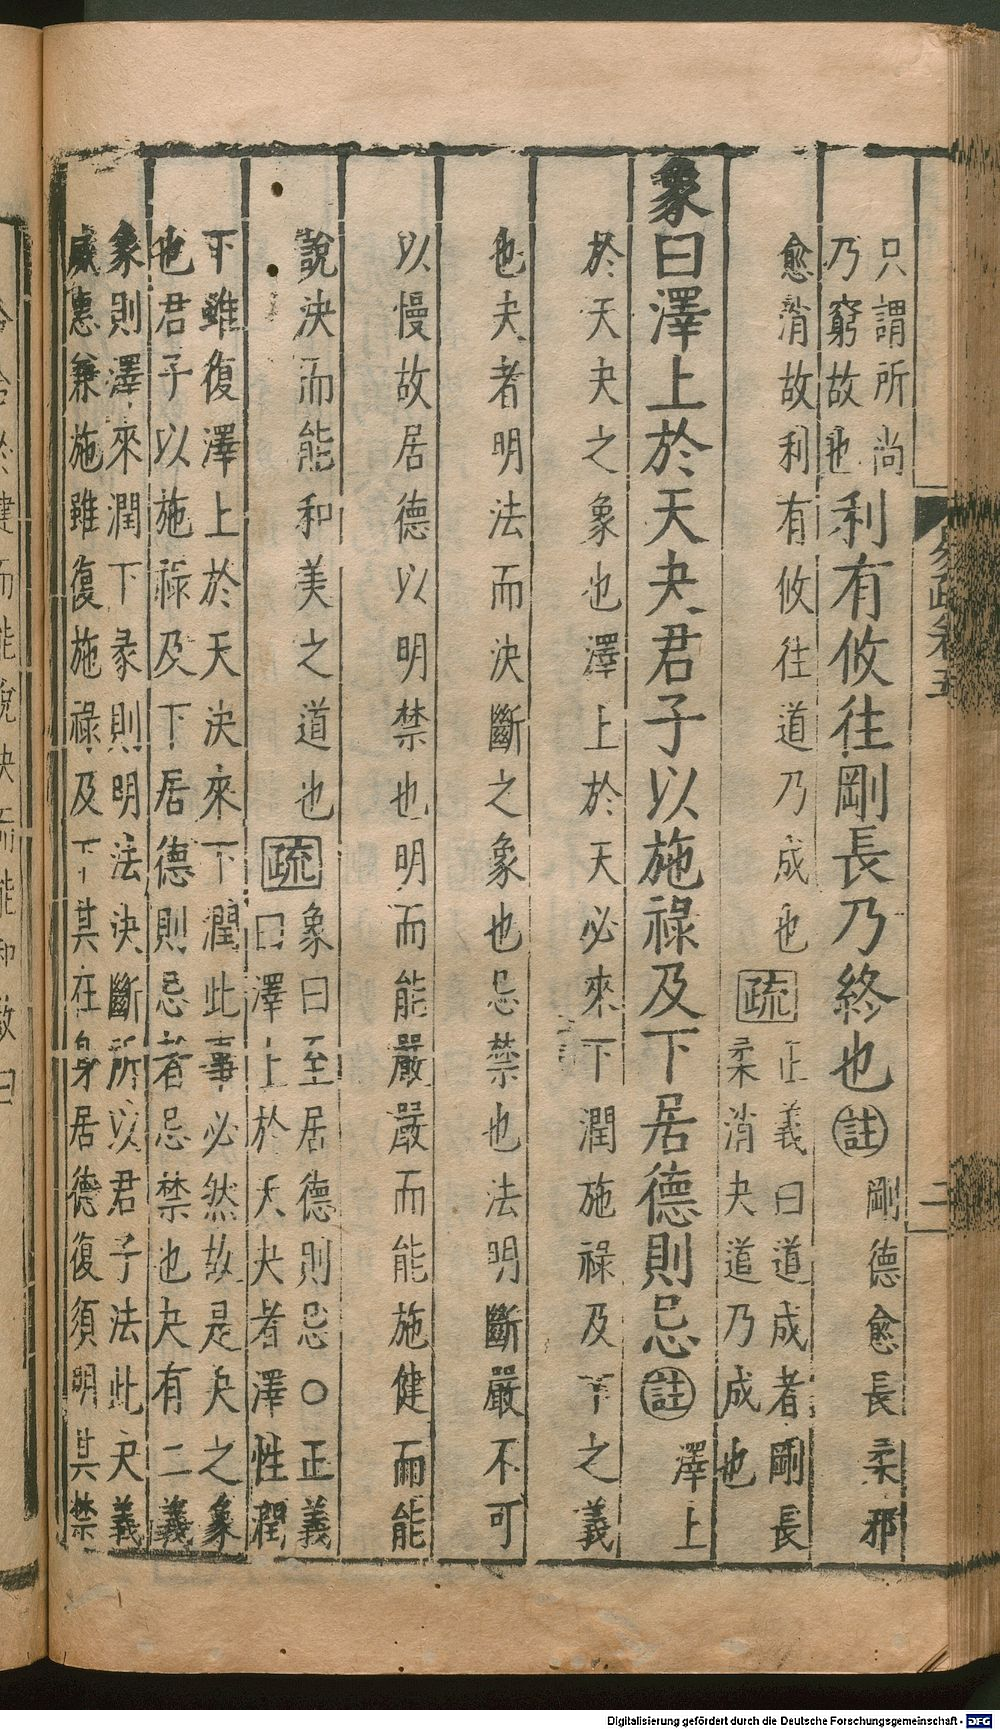 易疏卷五
二
只謂所尚
乃窮故也
利有攸往剛長乃終也註剛德愈長柔邪
愈消故利有攸往道乃成也疏
正義曰道成者剛長
柔消夬道乃成也
象曰澤上於天夬君子以施祿及下居德則忌註澤上
於天夬之象也澤上於天必來下潤施祿及下之義
也夬者明法而決斷之象也忌禁也法明斷嚴不可
以慢故居德以明禁也明而能嚴嚴而能施健而能
說決而能和美之道也疏
象曰至居德則忌○正義
曰澤上於天夬者澤性潤
下雖復澤上於天決來下潤此事必然故是夬之象
也君子以施祿及下居德則忌者忌禁也夬有二義
象則澤來潤下彖則明法決斷所以君子法此夬義
威惠兼施雖復施祿及下其在身居德復須明其禁
Digitalisierung gefördert durch die Deutsche Forschungsgemeinschaft - DFG